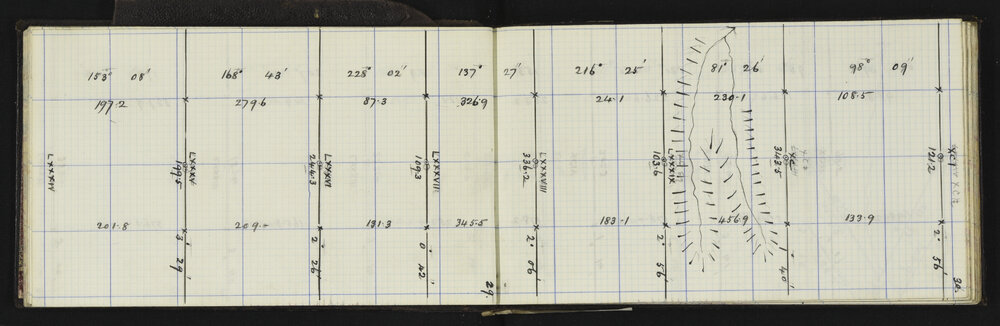 153° 08' 168° 43' 228° 02' 137° 27' 216° 25' 81° 26' 98° 09'
197.2 279.6 87.3 326.9 24.1 230.1 108.5
LXXXIV
LXXXV
199.5
LXXXVI
244.3
LXXXVII
109.3
LXXXVIII
336.2
LXXXIX
103.6
XC
343.5
XCI
121.2
201.8 209.- 131.3 345.5 183.1 456.9 133.9
3° 29'
2° 26'
0° 42'
2° 06'
2° 56'
1° 40'
2° 56'
29.
30.